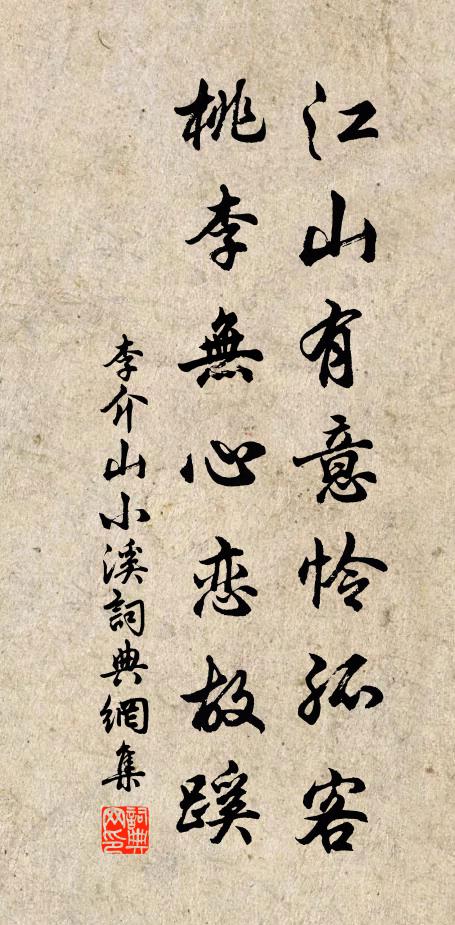 江山有意怜孤客
桃李無心恋故蹊
李介山小溪詞典網集
詞典网印